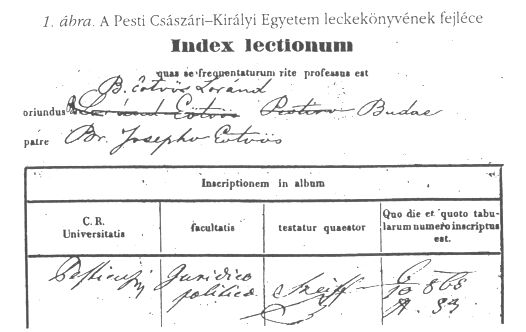 1. ábra. A Pesti Császári–Királyi Egyetem leckekönyvének fejléce
Index lectionum
quas se frequentaturum rite professus est
B. Eötvös Lorand
oriundus Lorand Eötvös Budae
patre Br. Josepho Eötvös
Inscriptionem in album
C. R. Universitatis
facultatis
testatur quaestor
Quo die et quoto tabularum numero inscriptus est.
Pestiensis
Juridico politica